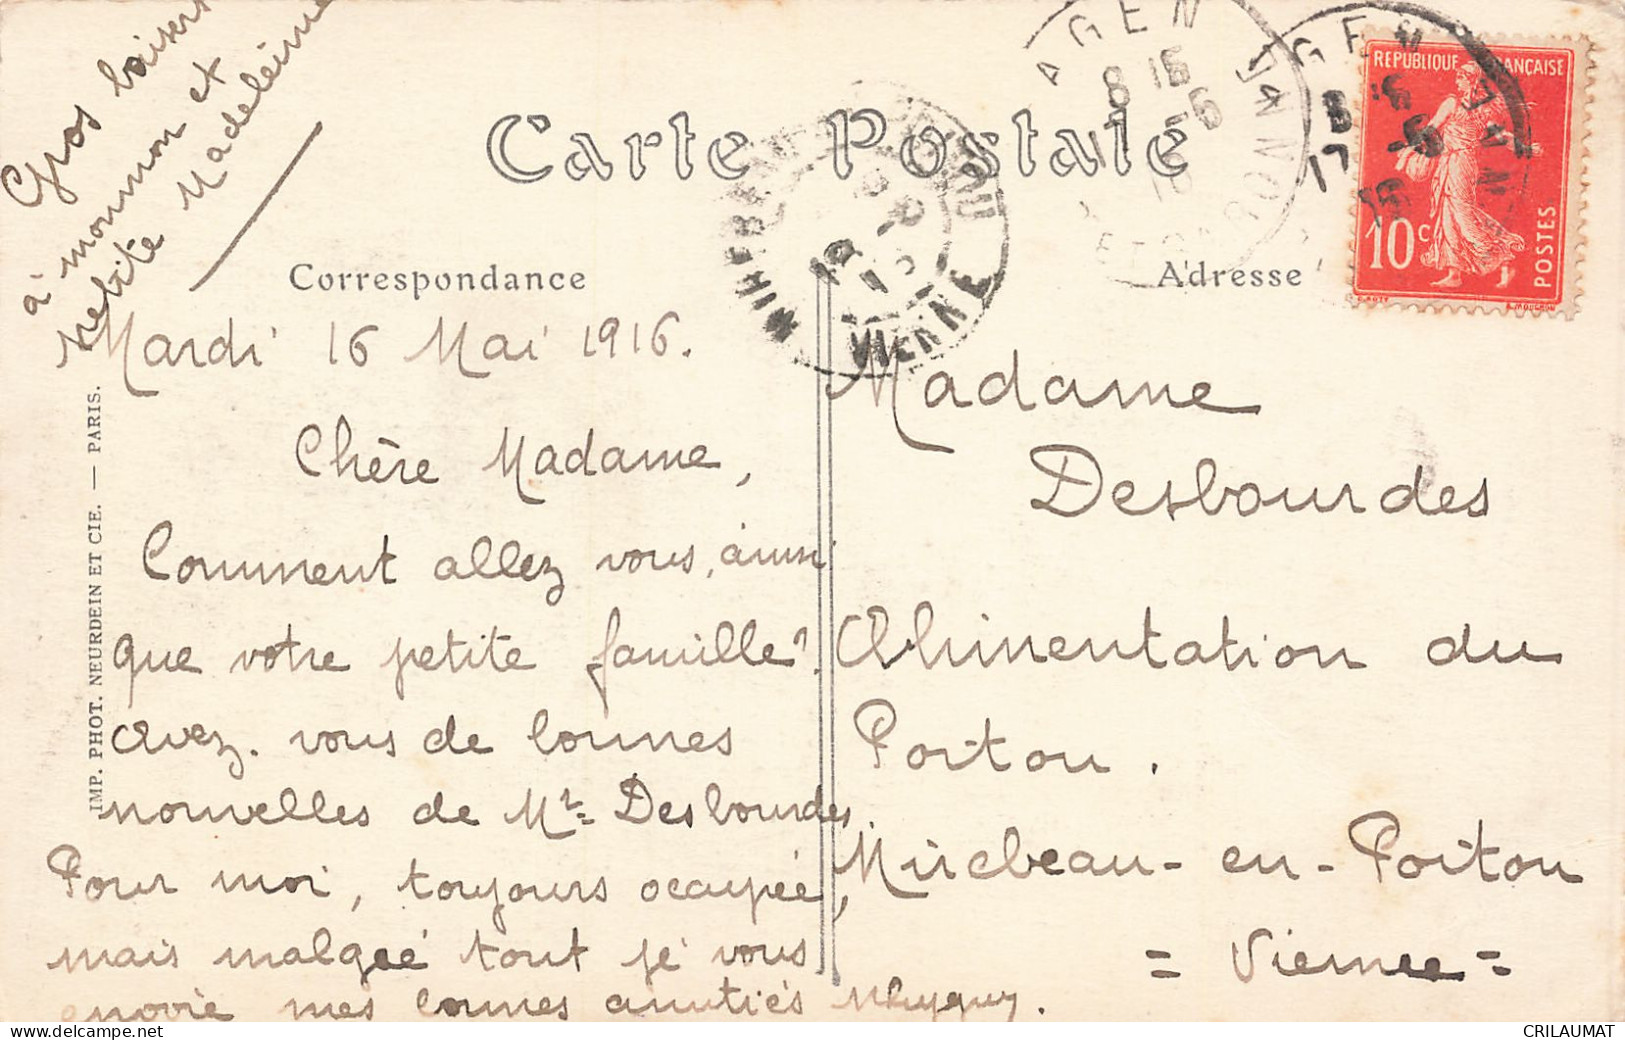 Gros baisers
à mounon et
petite Madeleine
Carte Postale
Correspondance
Adresse
Mardi 16 Mai 1916.
Chère Madame,
Comment allez vous, ainsi
que votre petite famille?
Avez-vous de bonnes
nouvelles de Mr Desbourdes
Pour moi, toujours occupée,
mais malgré tout je vous
envoie mes bonnes amitiés
Madame
Desbourdes
Alimentation du
Poitou.
Mirebeau-en-Poitou
= Vienne =
IMP. PHOT. NEURDEIN ET CIE. — PARIS.
REPUBLIQUE FRANÇAISE
10c
POSTES
AGEN
8 15
17 -5
16
AGEN
8 15
17 -5
16
VIENNE
CRILAUMAT